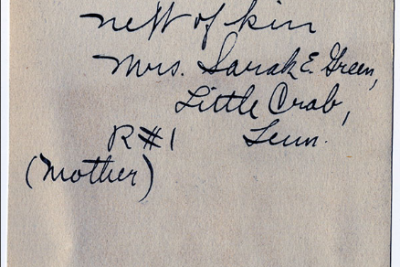 next of kin
Mrs. Sarah E. Green,
Little Crab,
R#1 Tenn.
(Mother)